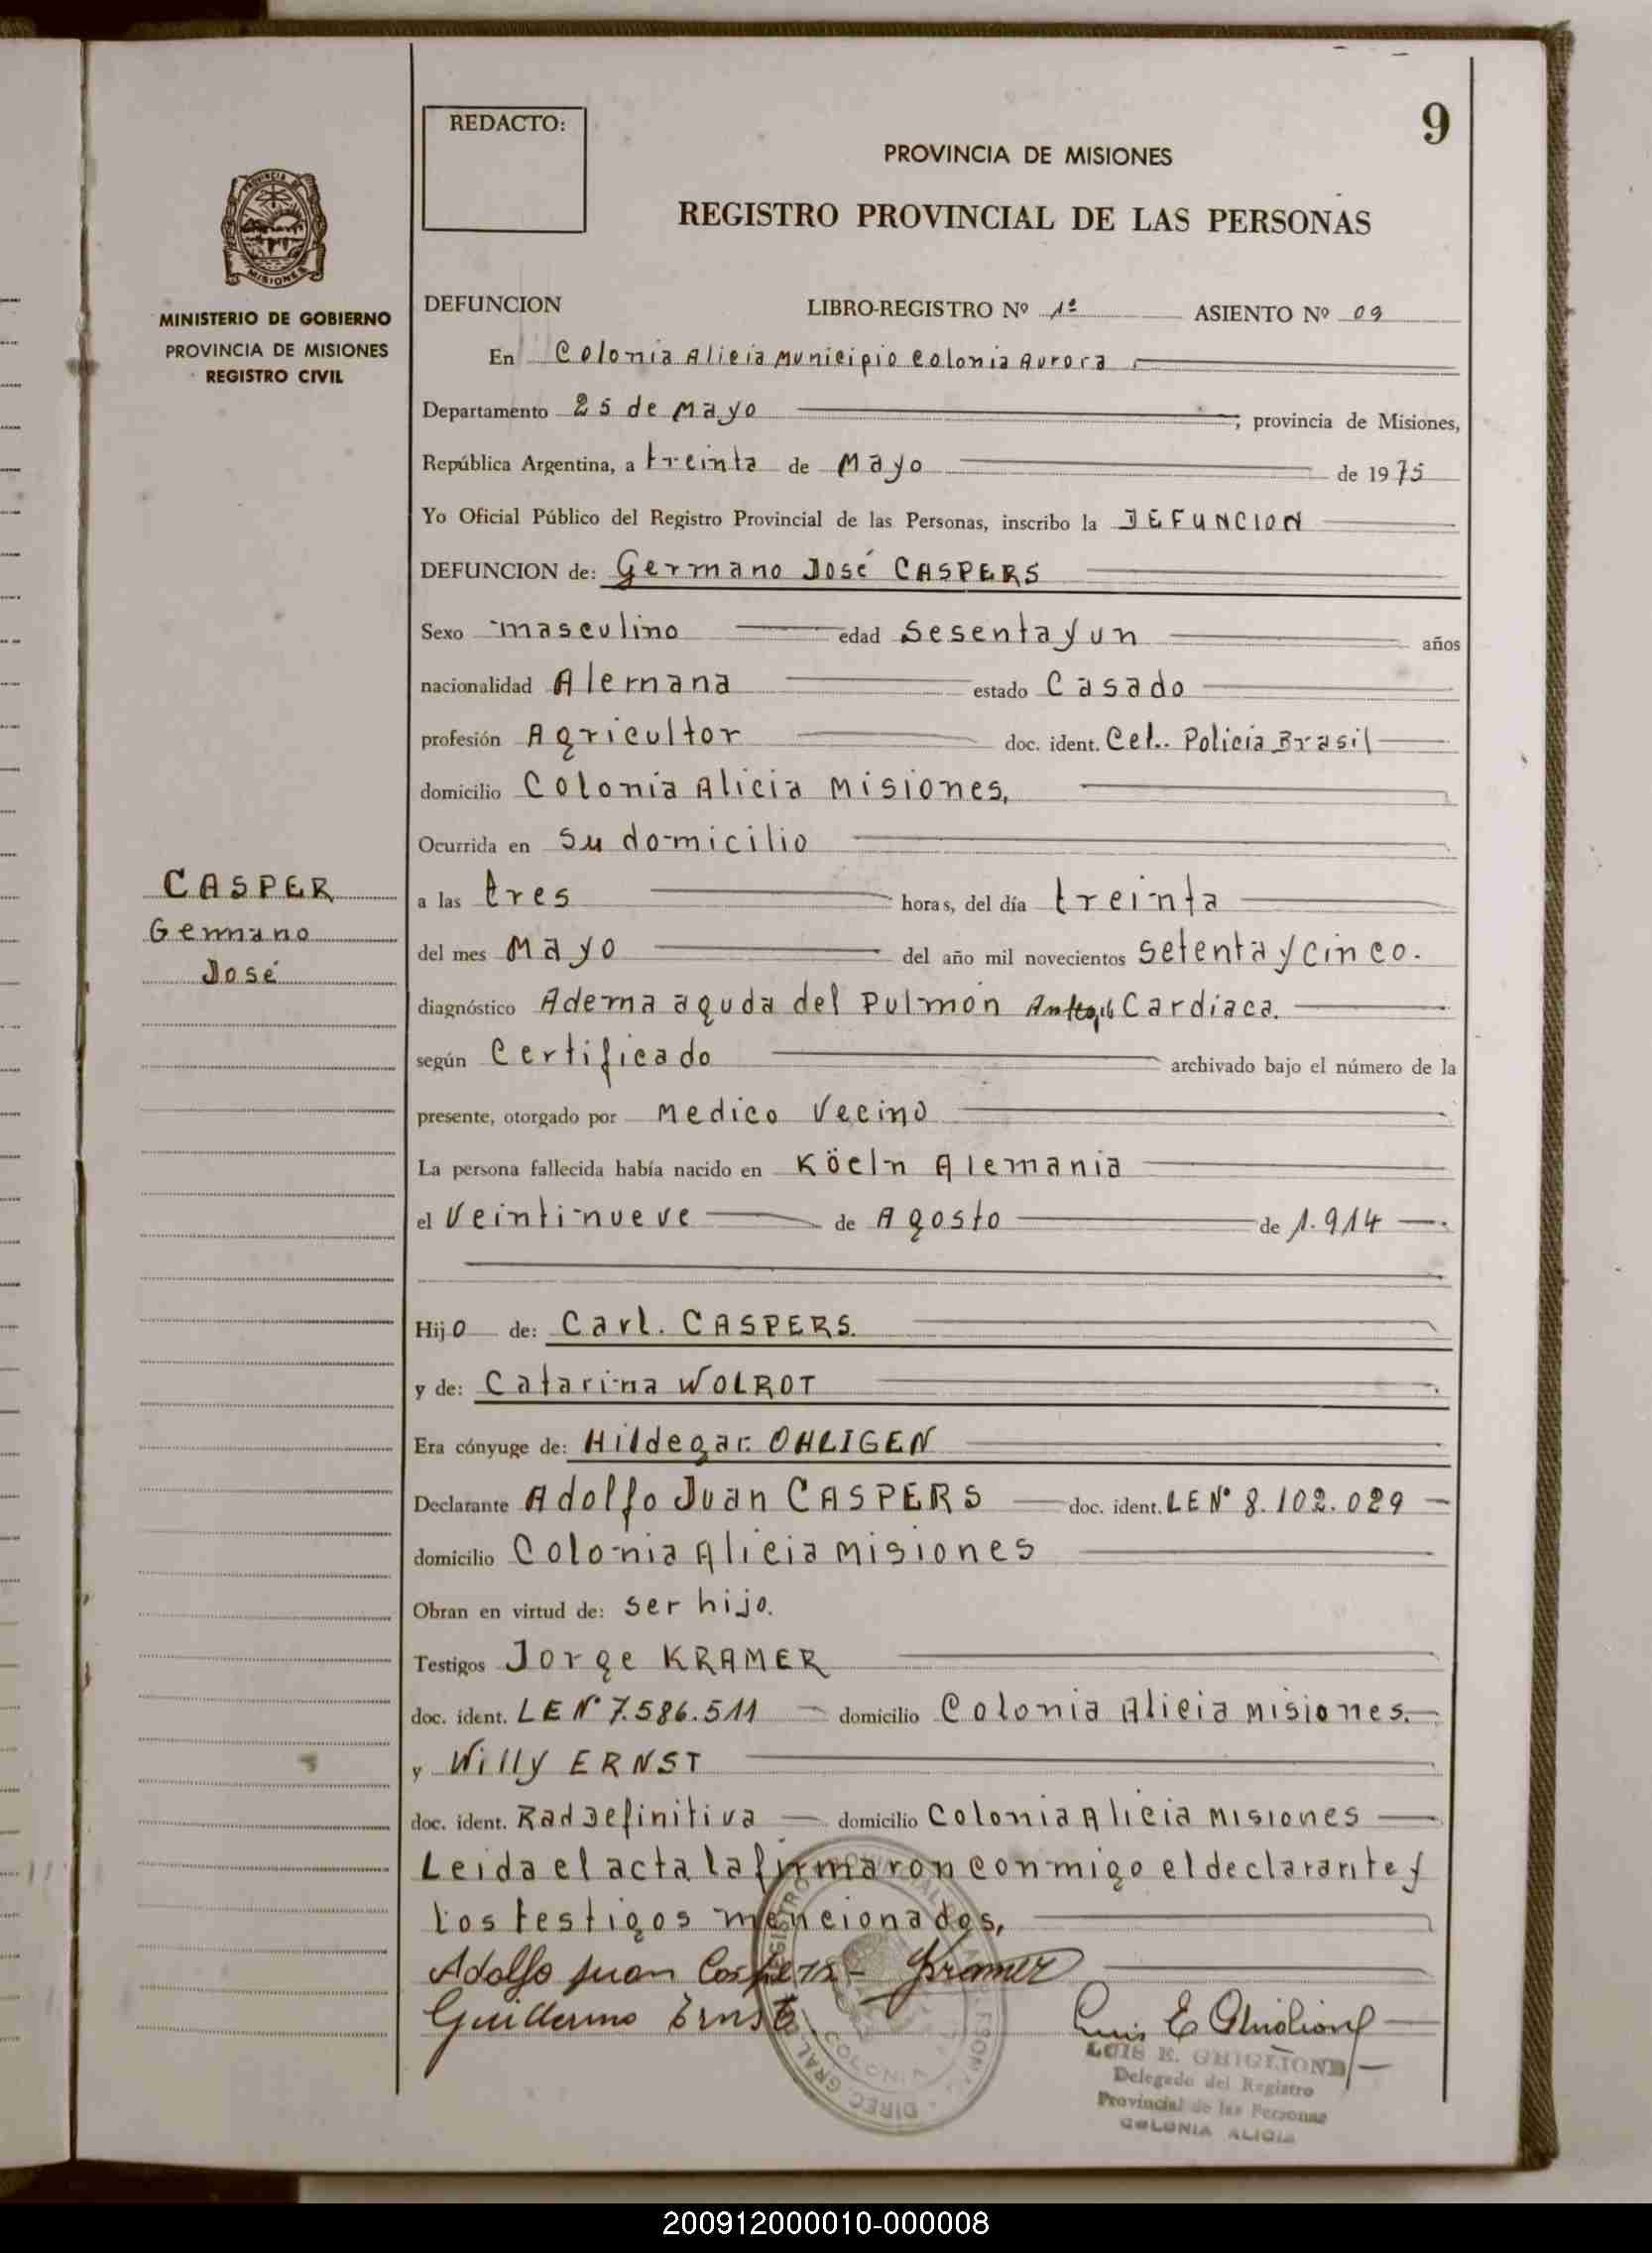 9
REDACTO:
PROVINCIA DE MISIONES
REGISTRO PROVINCIAL DE LAS PERSONAS
PROVINCIA DE
MISIONES
MINISTERIO DE GOBIERNO
PROVINCIA DE MISIONES
REGISTRO CIVIL
DEFUNCION LIBRO-REGISTRO Nº 1º ASIENTO Nº 09
En Colonia Alicia Municipio Colonia Aurora
Departamento 25 de Mayo ; provincia de Misiones,
República Argentina, a treinta de Mayo de 1975
Yo Oficial Público del Registro Provincial de las Personas, inscribo la DEFUNCION
DEFUNCION de: Germano José CASPERS
Sexo masculino edad Sesenta y un años
nacionalidad Alemana estado Casado
profesión Agricultor doc. ident. Cel.. Policia Brasil
domicilio Colonia Alicia Misiones,
Ocurrida en Su domicilio
CASPER
Germano
José
a las tres horas, del día treinta
del mes Mayo del año mil novecientos setenta y cinco.
diagnóstico Adema aguda del Pulmon Cardiaca.
según Certificado archivado bajo el número de la
presente, otorgado por Medico Vecino
La persona fallecida había nacido en Köeln Alemania
el Veintinueve de Agosto de 1.914
Hijo de: Carl. CASPERS.
y de: Catarina WOLROT
Era cónyuge de: Hildegar. OHLIGEN
Declarante Adolfo Juan CASPERS doc. ident. LE Nº 8.102.029
domicilio Colonia Alicia Misiones
Obran en virtud de: ser hijo.
Testigos Jorge KRAMER
doc. ident. LE Nº 7.586.511 domicilio Colonia Alicia Misiones.
y Willy ERNST
doc. ident. Rad Definitiva domicilio Colonia Alicia Misiones
Leida el acta la firmaron conmigo el declarante y
los testigos mencionados,
Adolfo Juan Caspers - Kramer
Guillermo Ernst
LUIS E. GHIGLIONE
Delegado del Registro
Provincial de las Personas
COLONIA ALICIA
200912000010-000008